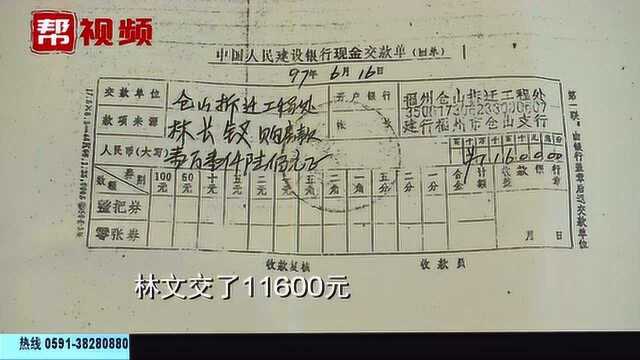 帮视频
中国人民建设银行现金交款单(回单)
97年6月16日
交款单位 仓山拆迁工程处 开户银行 福州仓山拆迁工程处
款项来源 林长钗 购房款 帐号
建行福州市仓山支行
人民币(大写) 壹万壹仟陆佰元正
券别 100元 50元 十元 五元 二元 一元 五角 二角 一角 五分 二分 一分 合计金额
数额
整把券
零张券
月 日
收款复核 收款员
第二联:由银行盖章后退交款单位
林文交了11600元
热线 0591-38280880